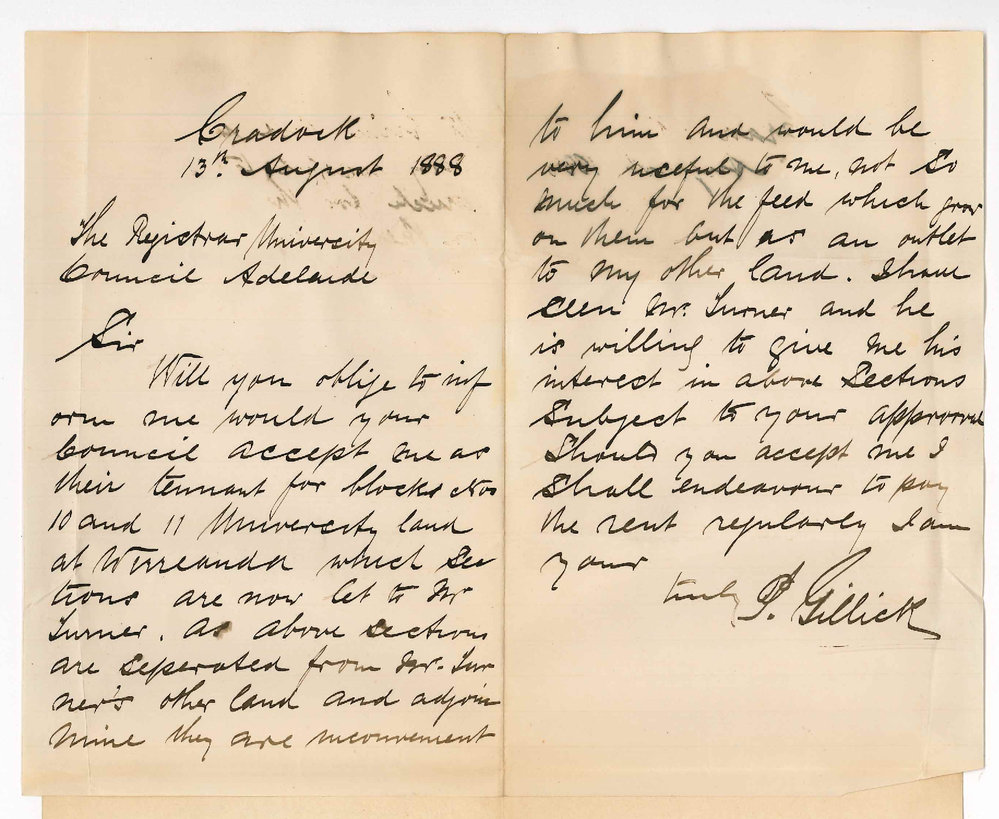 Cradock
13th August 1888
The Registrar Univercity
Council Adelaide
Sir
Will you oblige to inf
orm me would your
Council accept me as
their tennant for blocks Nos
10 and 11 Univercity land
at Wirreanda which Sec
tions are now let to Mr
Turner. As above sections
are seperated from Mr. Tur
ner's other land and adjoin
mine they are inconvenient
to him and would be
very useful to me, not so
much for the feed which grow
on them but as an outlet
to my other land. I have
seen Mr. Turner and he
is willing to give me his
interest in above Sections
Subject to your approval
Should you accept me I
shall endeavour to pay
the rent regularly I am
your
truly P. Gillick